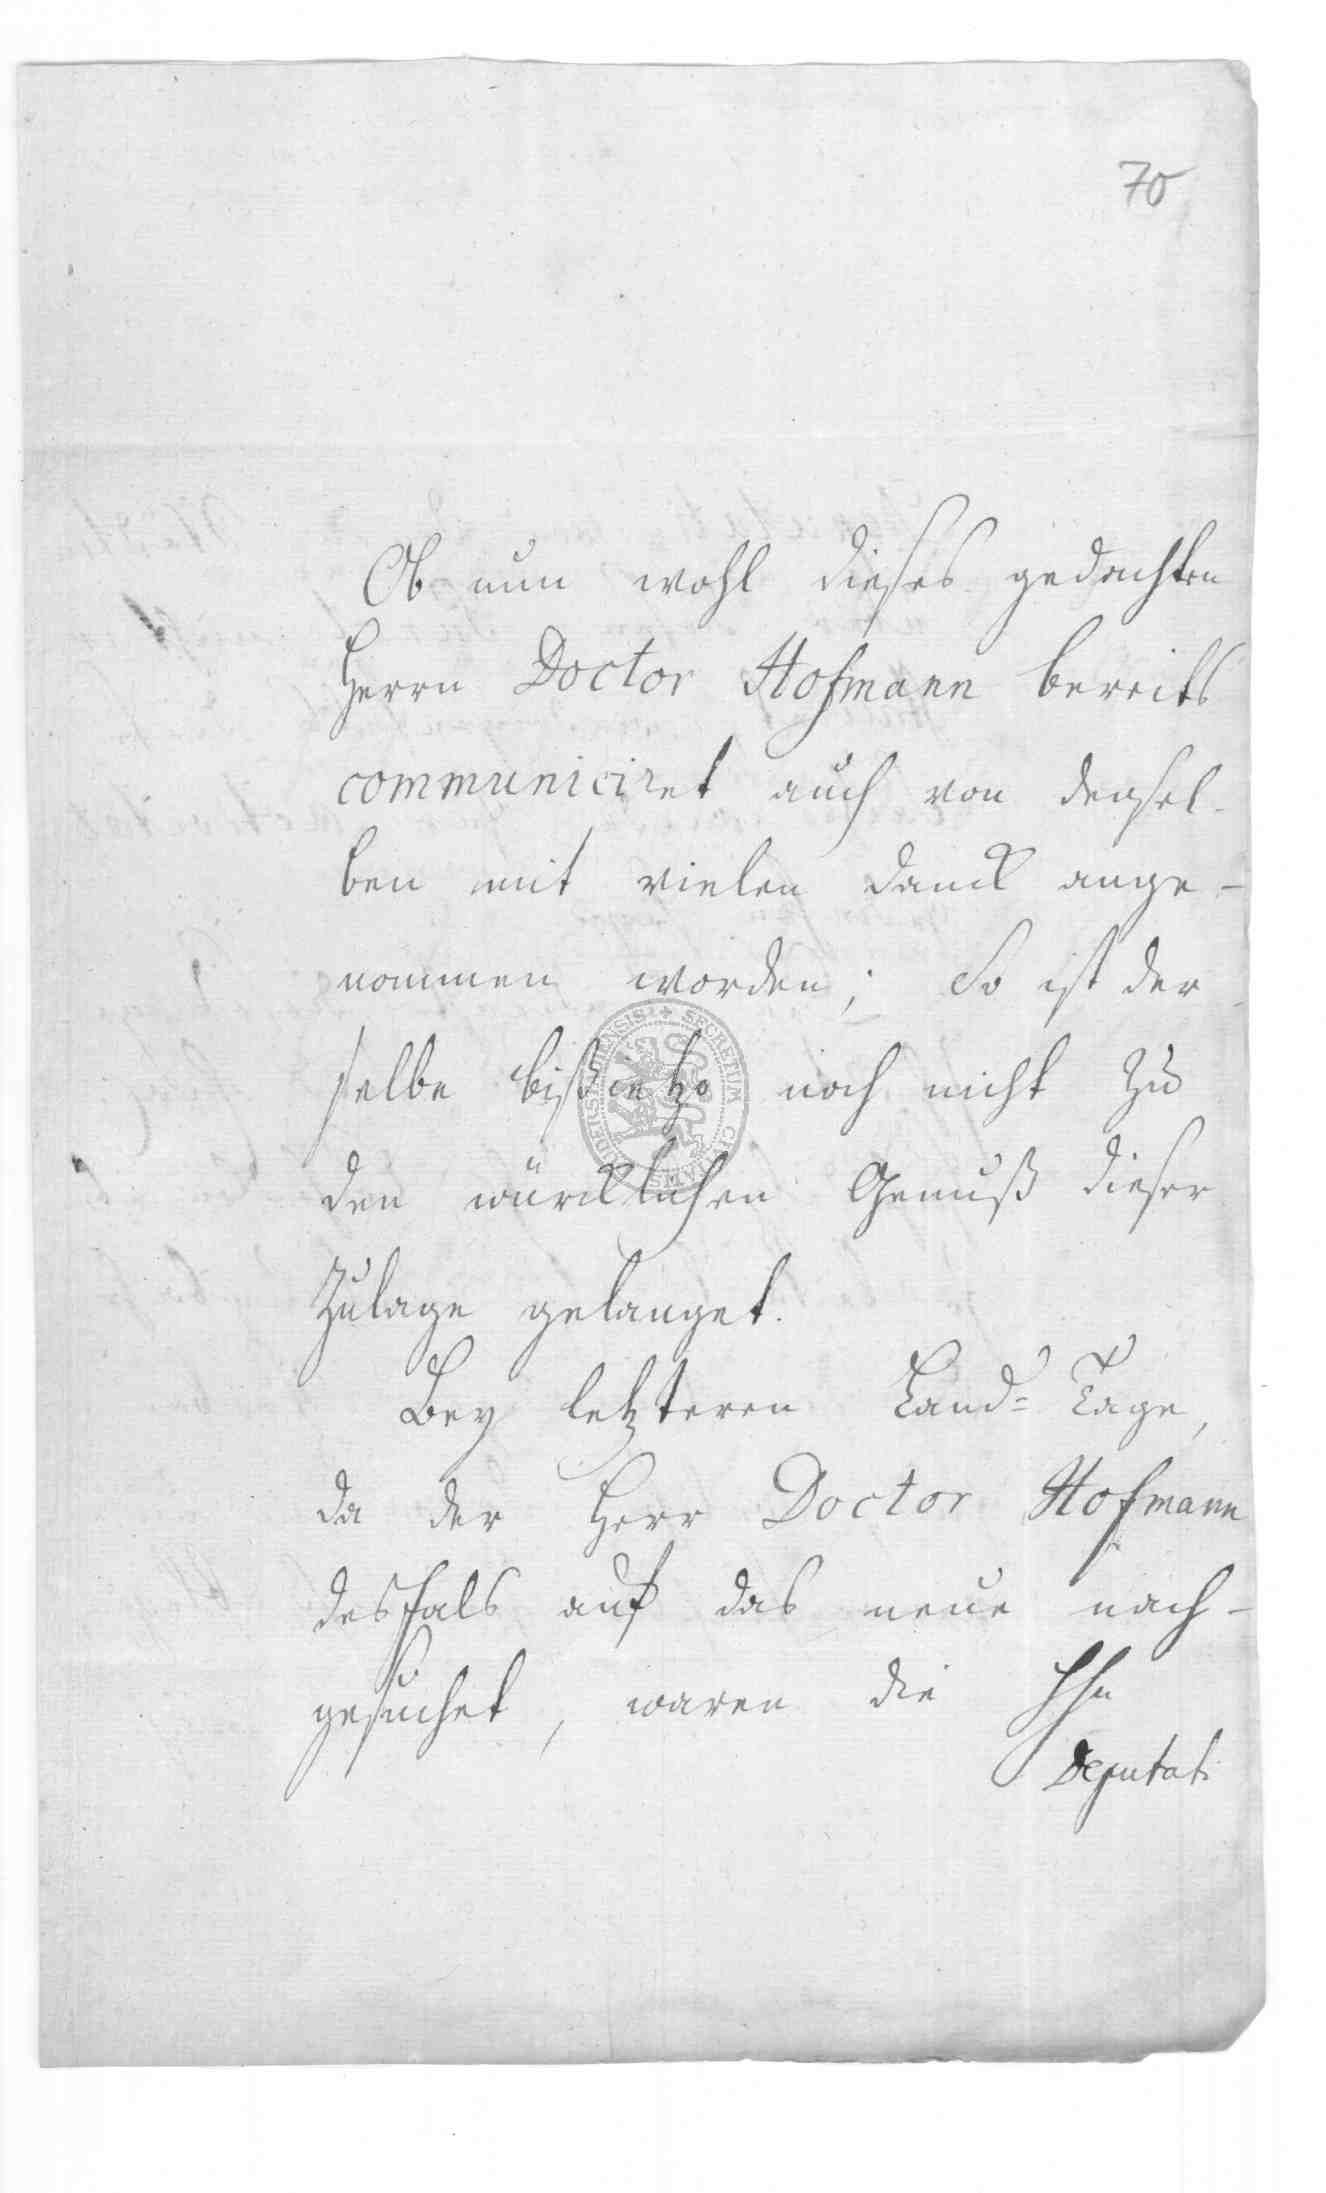 70
Ob nun wohl dieses gedachten
Herrn Doctor Hofmann bereits
communiciret auch von densel-
ben mit vielen Danck ange-
nommen worden; So ist der
selbe bißietzo noch nicht zu
den würcklichen Genuß dieser
Zulage gelanget.
Bey letzteren Land= Tage,
da der Herr Doctor Hofmann
desfals auf das neue nach-
gesuchet, waren die HHn
Deputati